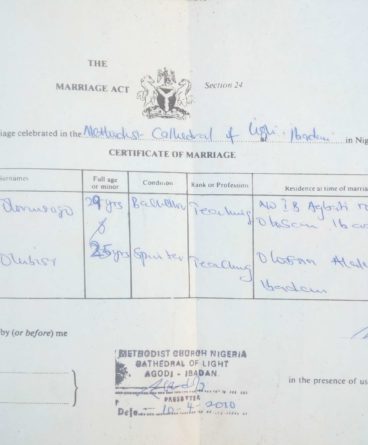 THE
MARRIAGE ACT
Section 24
iage celebrated in the Methodist Cathedral of Light Ibadan in Nig
CERTIFICATE OF MARRIAGE
Surnames Full age or minor Condition Rank or Profession Residence at time of marri
29 yrs Bachelor Teaching
Ibad
&
25 yrs Spinster Teaching
Ibadan
by (or before) me
METHODIST CHURCH NIGERIA
CATHEDRAL OF LIGHT
AGODI - IBADAN.
PRESBYTER
Date 10-4-2010
in the presence of us